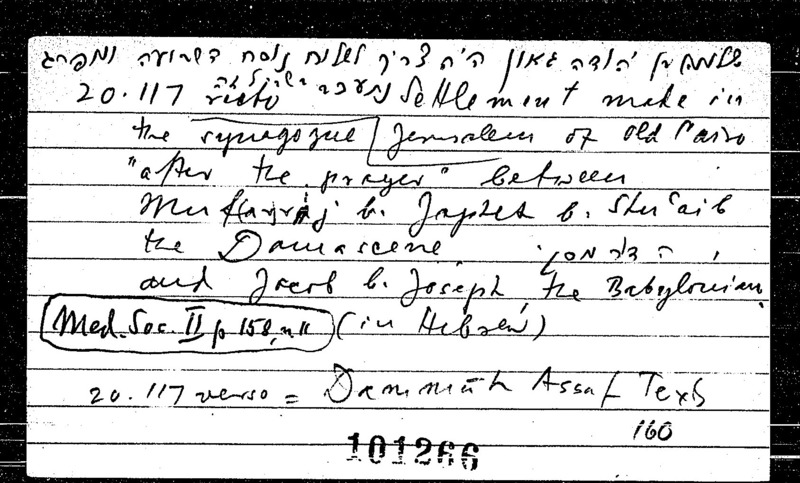 יהודה גאון היה צריך לשלוח נוסח
20.117 recto Settlement made in
the synagogue / Jerusalem of Old Cairo
"after the prayer" between
b. Japhet b. Shuʿaib
the Damascene,
and Jacob b. Joseph, the Babylonian,
Med. Soc. II p 158, n 11 (in Hebrew)
20.117 verso = Dammūh Assaf Texts
160
101266